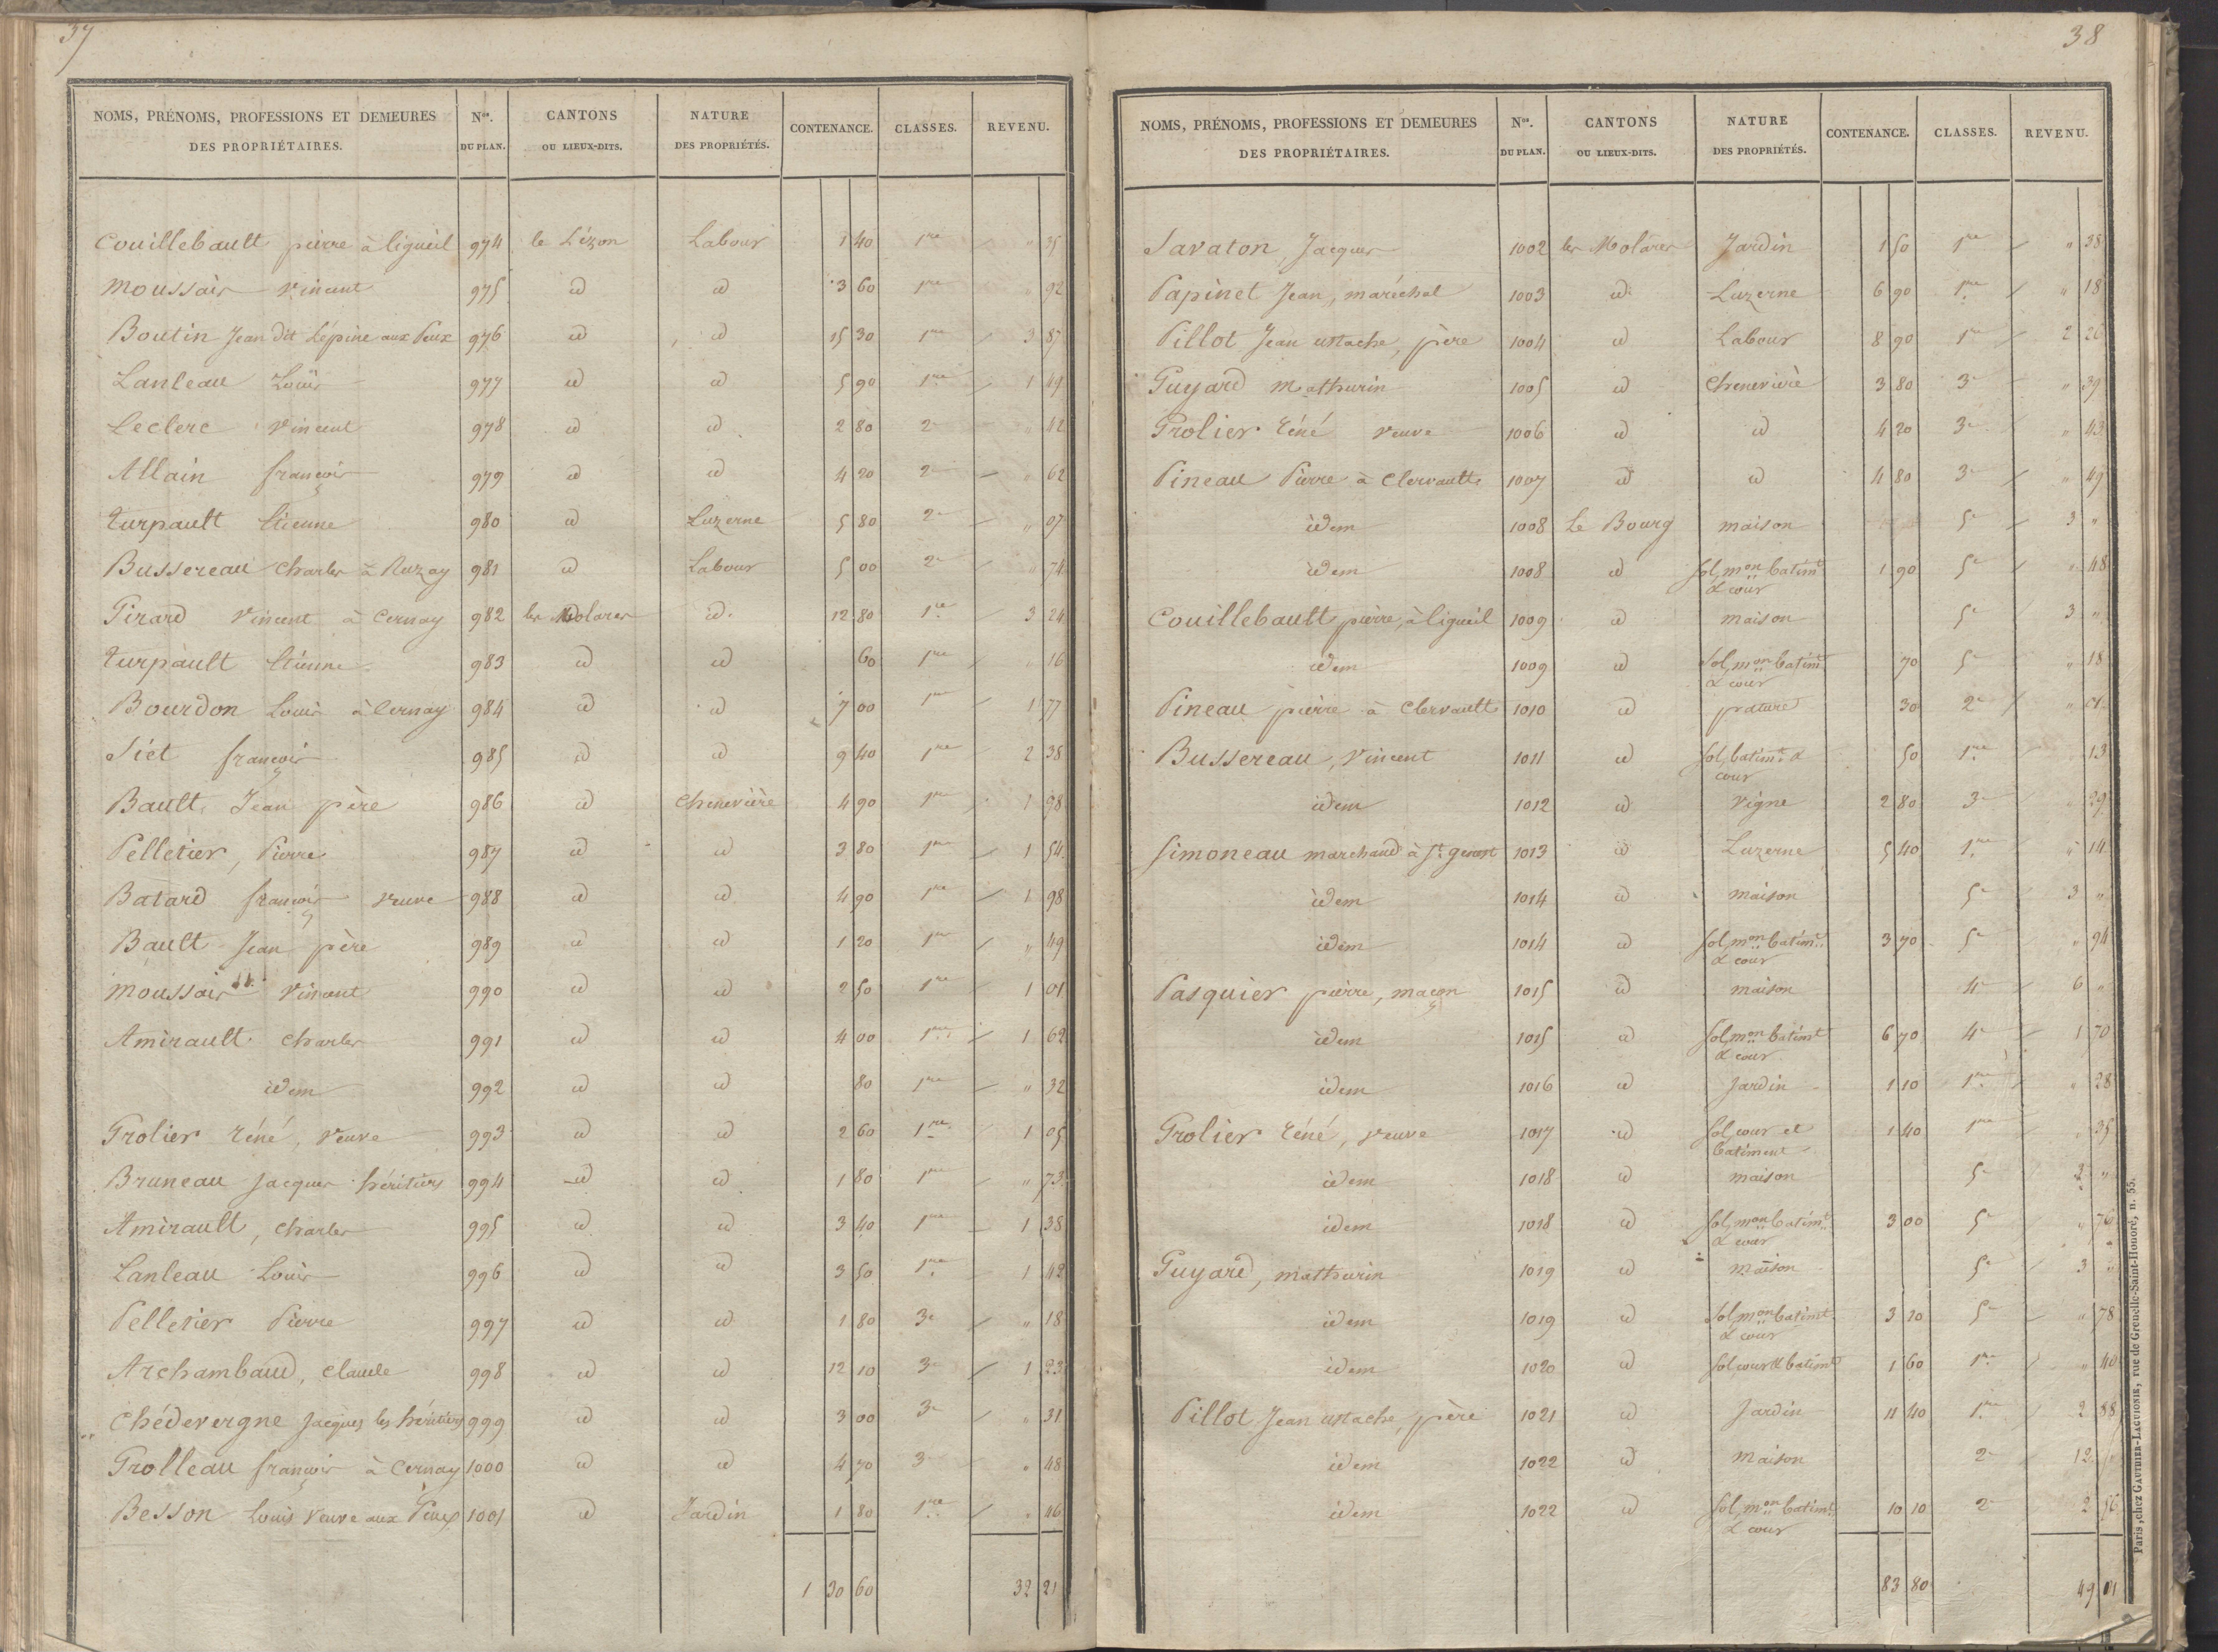 37
NOMS, PRÉNOMS, PROFESSIONS ET DEMEURES DES PROPRIÉTAIRES. Nos. DU PLAN. CANTONS OU LIEUX-DITS. NATURE DES PROPRIÉTÉS. CONTENANCE. CLASSES. REVENU.
Couillebault pierre à ligueil 974 le Lézon Labour 1 40 1re " 35
Moussais Vincent 975 id id 3 60 1re " 92
Boutin Jean dit Lépine aux Peux 976 id id 15 30 1re 3 87
Lanleau Louis 977 id id 5 90 1re 1 49
Leclerc Vincent 978 id id 2 80 2e " 42
Allain françois 979 id id 4 20 2e " 62
Turpault Etienne 980 id Luzerne 5 80 2e " 07
Bussereau Charles à Nuzay 981 id Labour 5 00 2e " 74
Girard Vincent à Cernay 982 les Molares id. 12 80 1re 3 24
Turpault Etienne 983 id id 60 1re " 16
Bourdon Louis à Cernay 984 id id 7 00 1re 1 77
Siet françois 985 id id 9 40 1re 2 38
Bault, Jean père 986 id Chenevière 4 90 1re 1 98
Pelletier, Pierre 987 id id 3 80 1re 1 54
Batard françois veuve 988 id id 4 90 1re 1 98
Bault Jean père 989 id id 1 20 1re " 49
Moussais Vincent 990 id id 2 50 1re 1 01
Amirault Charles 991 id id 4 00 1re 1 62
idem 992 id id 80 1re " 32
Grolier réné, veuve 993 id id 2 60 1re 1 05
Bruneau Jacques héritiers 994 id id 1 80 1re " 73
Amirault, Charles 995 id id 3 40 1re 1 38
Lanleau Louis 996 id id 3 50 1re 1 42
Pelletier Pierre 997 id id 1 80 3e " 18
Archambaud, Claude 998 id id 12 10 3e 1 23
Chédevergne Jacques les héritiers 999 id id 3 00 3e " 31
Grolleau françois à Cernay 1000 id id 4 70 3e " 48
Besson Louis veuve aux Peux 1001 id Jardin 1 80 1re " 46
1 30 60 32 21
38
NOMS, PRÉNOMS, PROFESSIONS ET DEMEURES DES PROPRIÉTAIRES. Nos. DU PLAN. CANTONS OU LIEUX-DITS. NATURE DES PROPRIÉTÉS. CONTENANCE. CLASSES. REVENU.
Savaton, Jacques 1002 les Molares Jardin 1 50 1re " 38
Papinet Jean, maréchal 1003 id. Luzerne 6 90 1re " 18
Pillot Jean ustache, père 1004 id Labour 8 90 1re 2 26
Guyard Mathurin 1005 id Chenevière 3 80 3e " 39
Grolier réné veuve 1006 id id 4 20 3e " 43
Pineau Pierre à Clervault 1007 id id 4 80 3e " 49
idem 1008 Le Bourg maison 5e 3 "
idem 1008 id Sol, mon batimt & cour 1 90 5e " 48
Couillebault pierre, à ligueil 1009 id maison 5e 3 "
idem 1009 id Sol, mon batimt & cour 70 5e " 18
Pineau pierre à Clervault 1010 id pature 30 2e "
Bussereau, Vincent 1011 id Sol, batimt & cour 50 1re 13
idem 1012 id vigne 2 80 3e " 29
Simoneau marchand à St genest 1013 id Luzerne 5 40 1re " 14
idem 1014 id maison 5e 3 "
idem 1014 id Sol, mon batimt & cour 3 70 5e " 94
Pasquier pierre, maçon 1015 id maison 4e 6 "
idem 1015 id Sol, mon batimt & cour 6 70 4e 1 70
idem 1016 id Jardin 1 10 1re " 28
Grolier réné, veuve 1017 id Sol, cour et batiment 1 40 1re " 35
idem 1018 id maison 5e 3 "
idem 1018 id Sol, mon batimt & cour 3 00 5e " 76
Guyard, mathurin 1019 id maison 5e 3 "
idem 1019 id Sol, mon batimt & cour 3 10 5e " 78
idem 1020 id Sol, cour & batimt 1 60 1re " 40
Pillot Jean ustache, père 1021 id Jardin 11 40 1re 2 88
idem 1022 id maison 2e 12 "
idem 1022 id Sol, mon batimt & cour 10 10 2e 2 56
83 80 49 01
Paris, chez GAUTHIER-LAGUIONIE, rue de Grenelle-Saint-Honoré, n. 55.